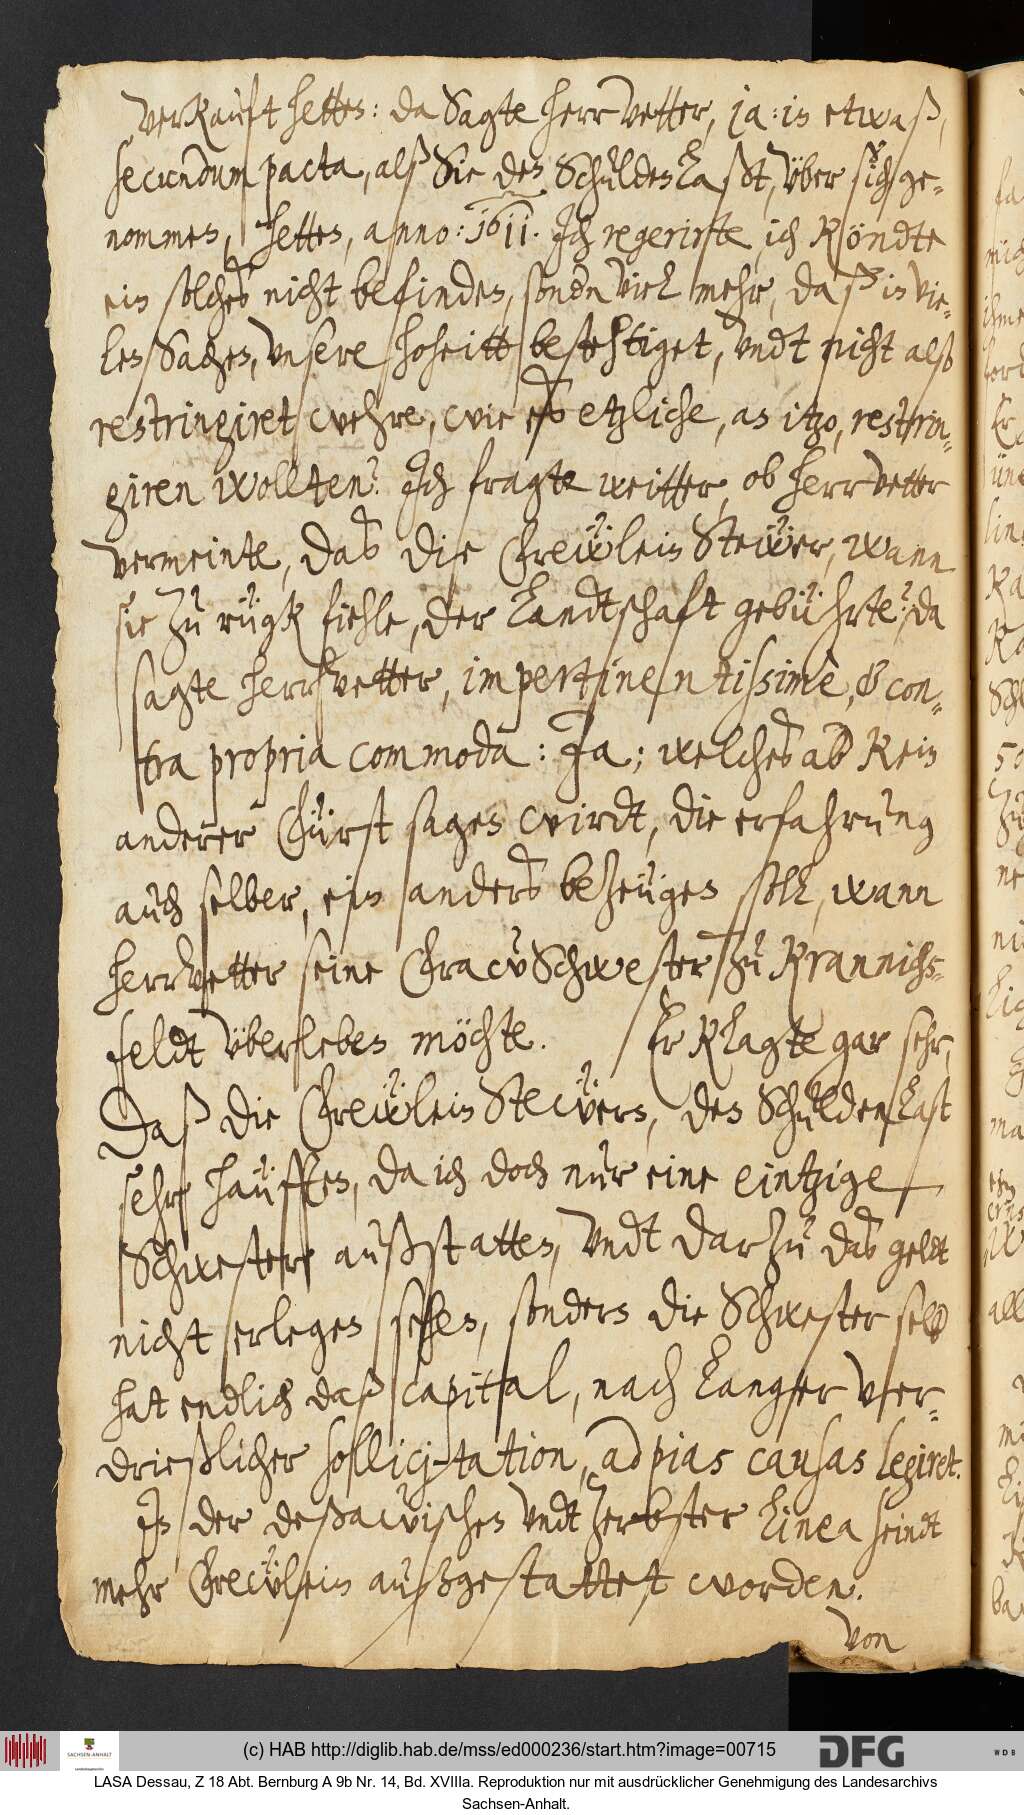 verkauft hetten: da sagte herrvetter, ja: in etwaß,
secundum pacta, alß Sie den Schuldenlaßt, über sich ge-
nommen, hetten, anno: 1611. Ich regerirte, ich köndte
ein solches nicht befinden, sondn viel mehr, daß in vie-
len Sachen, unsere hoheitt besteht​iget, undt nicht also
restringiret wehre, wie es etzliche, an itzo, restrin-
giren wollten? Ich fragte weitter, ob herrvetter
vermeinte, das die Frewlein Stewer, wann
sie zu rügk fiehle, der Landtschaft gebührte? da
sagte herrvetter, impertinentissimè, & con-
tra propria commoda: Ja; welches ab kein
anderer Fürst sagen wirdt, die erfahrung
auch selber, ein anders bezeugen soll, wann
herrvetter seine Fraw Schwester zu Krannich-
feldt überleben möchte. Er klagte gar sehr,
Daß die Frewlein Stewern, den Schuldenlast
sehr häufften, da ich doch nur eine eintzige
Schwester außstatten, undt darzu das geldt
nicht erlegen sehen, sondern die Schwester selb
hat endlich daß capital, nach langer ver-
drießlicher sollicitation, ad pias causas legiret.
In der deßawischen undt Zerbster Linea seindt
mehr Frewlein außgestattet worden.
von
(c) HAB http://diglib.hab.de/mss/ed000236/start.htm?image=00715
DFG
WDB
SACHSEN-ANHALT
LASA Dessau, Z 18 Abt. Bernburg A 9b Nr. 14, Bd. XVIIIa. Reproduktion nur mit ausdrücklicher Genehmigung des Landesarchivs
Sachsen-Anhalt.